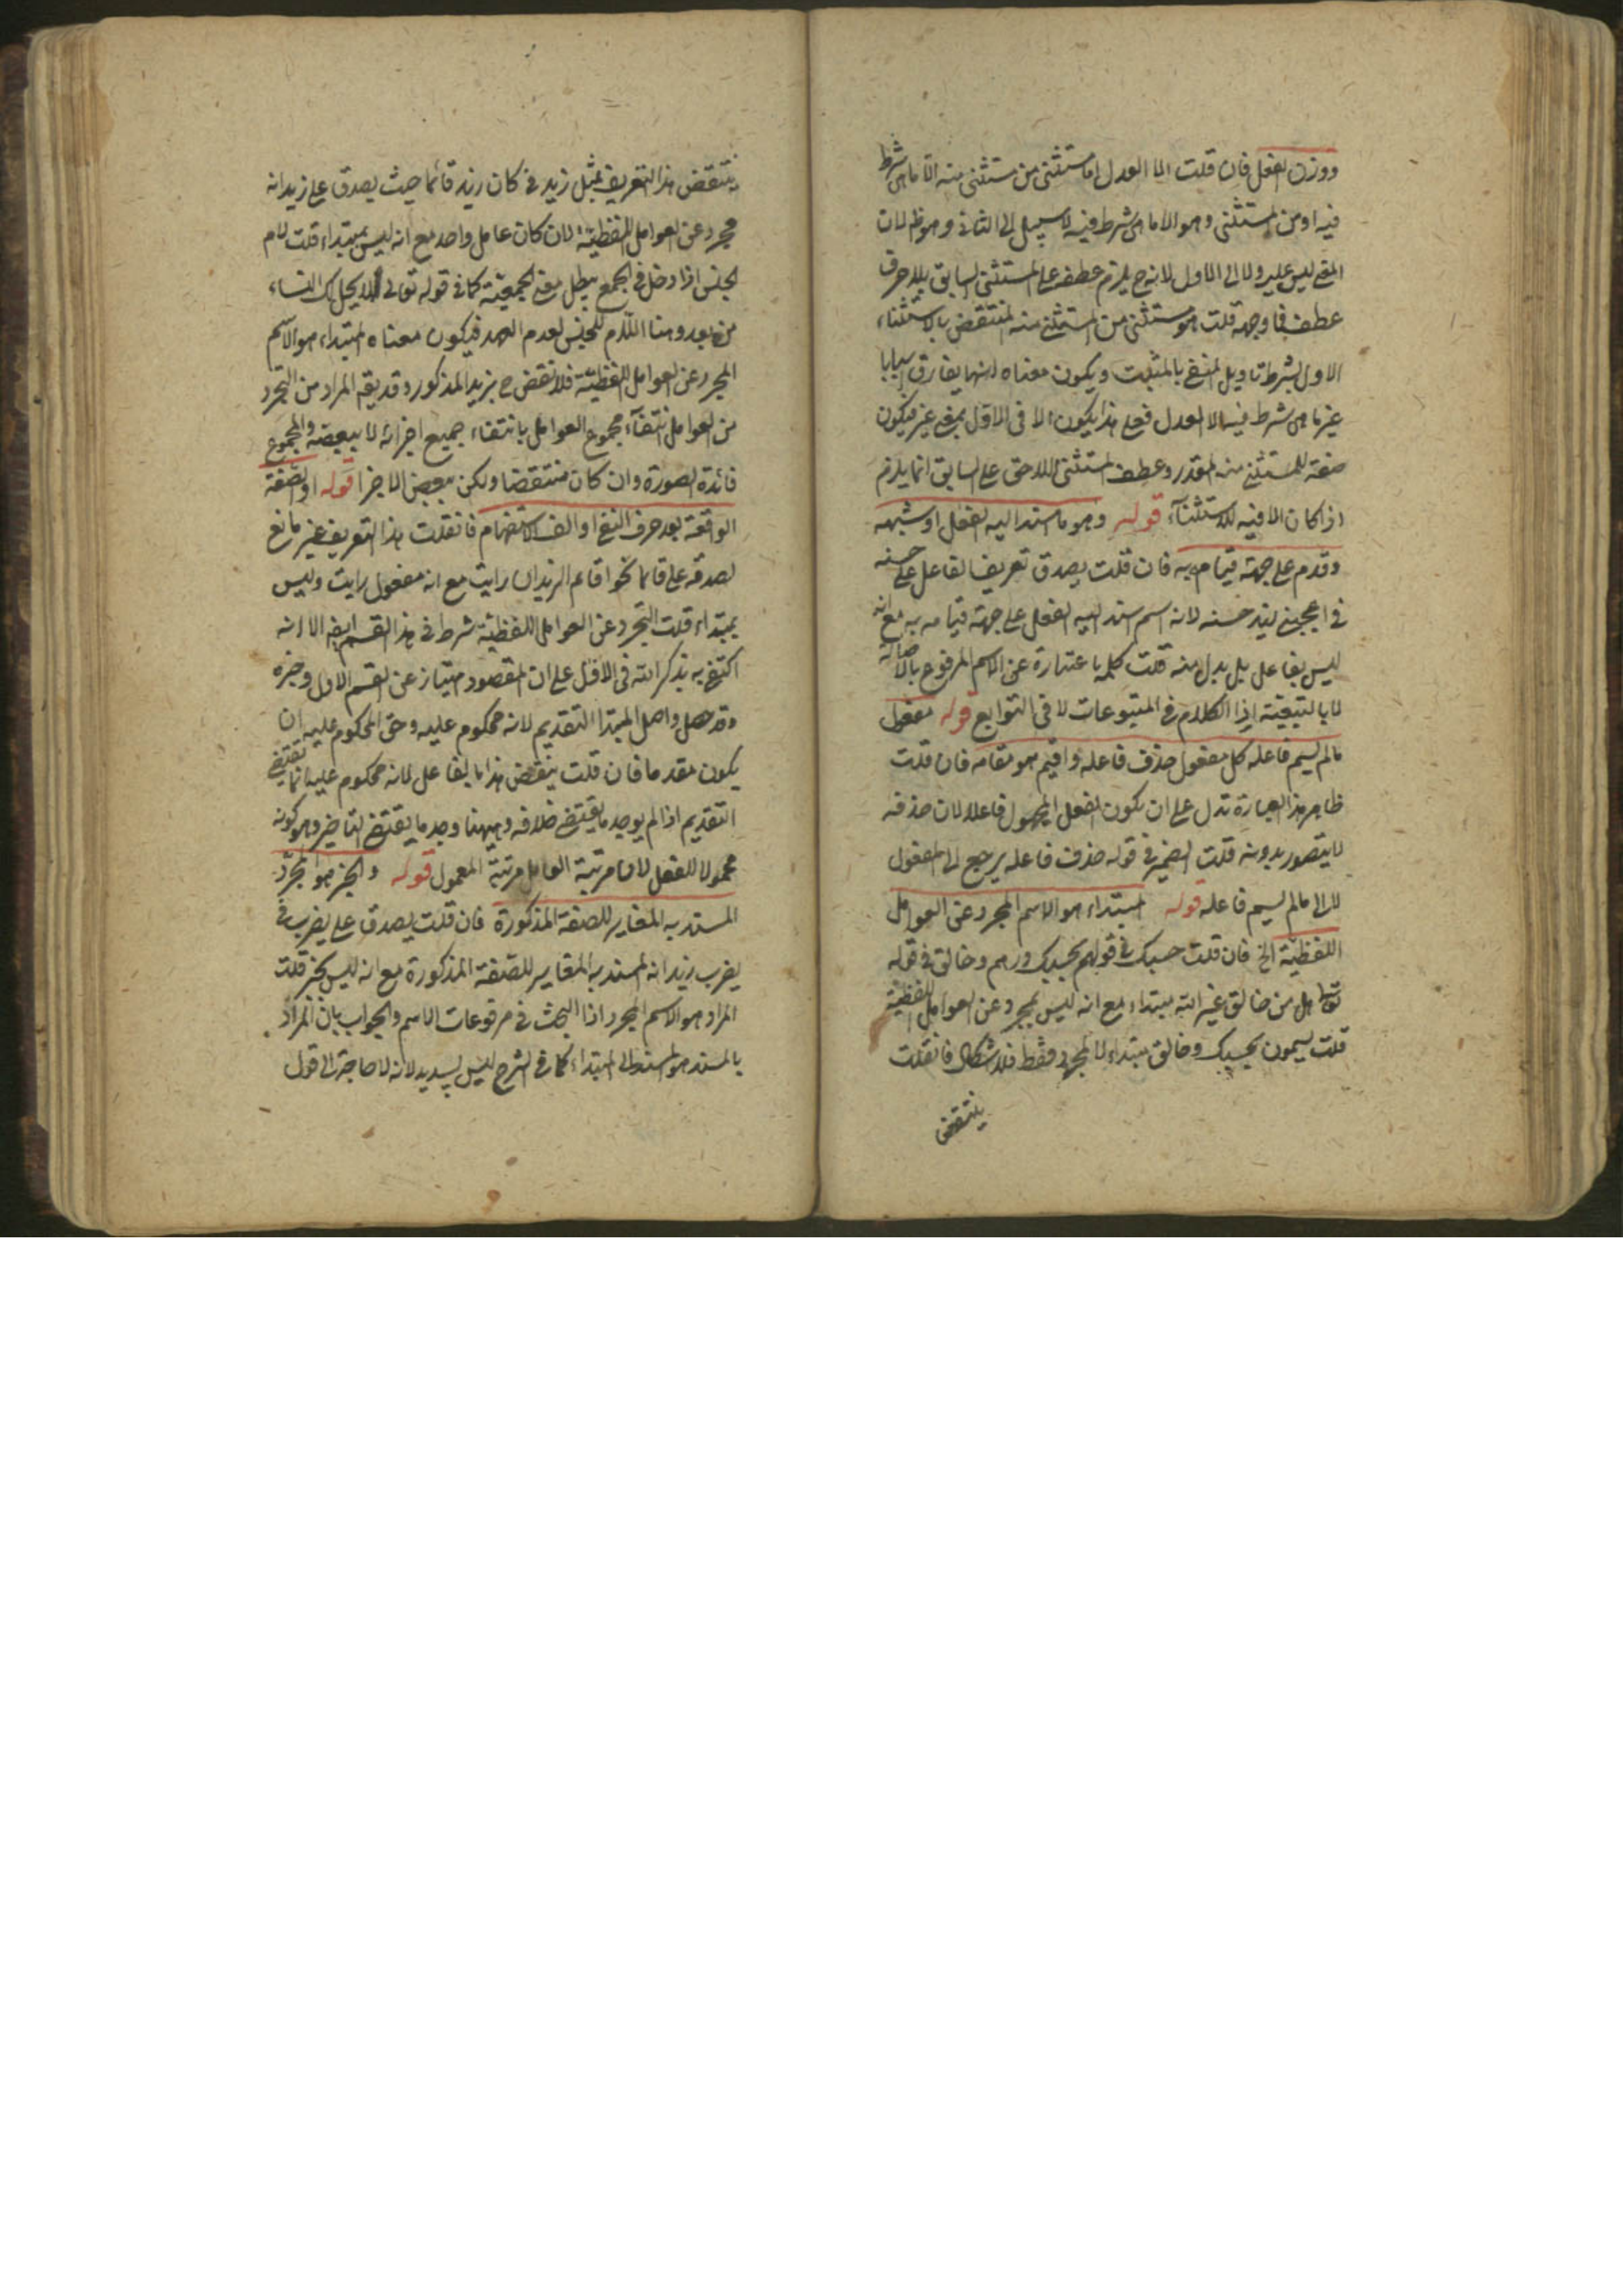 ووزن الفعل فان قلت الا العدل اما مستثنى من مستثنى منه الا ما هى شرط
فيه او من المستثنى وهو الا ما هى شرط فيه لا سبيل الى الثانى وهو ظ لان
المعنى ليس عليه ولا الى الاول لانه ح يلزم عطفه على المستثنى السابق بلا حرف
عطف فما وجهه قلت هو مستثنى من المستثنى منه المنتقض بالاستثناء
الاول بشرط تاويل المنفى بالمثبت ويكون معناه انها يفارق اسبابا
غير ما هى شرط فيه الا العدل فعلى هذا يكون الا فى الاول بمعنى غير فيكون
صفة للمستثنى منه المقدر وعطف المستثنى اللاحق على السابق انما يلزم
اذا كان الا فيه للاستثناء قوله وهو ما اسند اليه الفعل او شبهه
وقدم على جهة قيامه به فان قلت يصدق تعريف الفاعل على حسنه
فى اعجبنى زيد حسنه لانه اسم اسند اليه الفعل على جهة قيامه به مع انه
ليس بفاعل بل بدل منه قلت كلمة ما عبارة عن الاسم المرفوع بالاصالة
لا بالتبعية اذا الكلام فى المتبوعات لا فى التوابع قوله مفعول
ما لم يسم فاعله كل مفعول حذف فاعله واقيم هو مقامه فان قلت
ظاهر هذا العبارة تدل على ان يكون الفعل المجهول فاعلا لان حذفه
لا يتصور بدونه قلت الضمير فى قوله حذف فاعله يرجع الى المفعول
لا الى ما لم يسم فاعله قوله المبتداء هو الاسم المجرد عن العوامل
اللفظية الخ فان قلت حسبك فى قولهم بحسبك درهم وخالق فى قوله
تعالى هل من خالق غير الله مبتداء مع انه ليس بمجرد عن العوامل اللفظية
قلت يسمون بحسبك وخالق مبتداء لا المجرور فقط فلا اشكال فان قلت
ينتقض
ينتقض هذا التعريف بمثل زيد فى كان زيد قائما حيث يصدق على زيد انه
مجرد عن العوامل اللفظية لان كان عامل واحد مع انه ليس بمبتداء قلت لام
الجنس اذا دخل فى الجمع يبطل معنى الجمعية كما فى قوله تعالى لا يحل لك النساء
من بعد وهنا اللام للجنس لعدم العهد فيكون معناه المبتداء هو الاسم
المجرد عن العوامل اللفظية فلا نقض ح بزيد المذكور وقد يقع المراد من التجرد
من العوامل انتفاء مجموع العوامل بانتفاء جميع اجزائه لا ببعضه والمجموع
فائدة الصورة وان كان منتقضا ولكن ببعض الاجزا قوله او الصفة
الواقعة بعد حرف النفى او الف الاستفهام فان قلت هذا التعريف غير مانع
لصدقه على قائما نحو اقائم الزيدان رايت مع انه مفعول رايت وليس
بمبتداء قلت التجرد عن العوامل اللفظية شرط فى هذا القسم ايضا الا انه
اكتفى به بذكر انه فى الاول على ان المقصود امتياز عن القسم الاول وخبره
وقد حصل واصل المبتدا التقديم لانه محكوم عليه وحق المحكوم عليه ان
يكون مقدما فان قلت ينتقض هذا بالفاعل لانه محكوم عليه انما يقتضى
التقديم اذا لم يوجد ما يقتضى خلافه وههنا وجد ما يقتضى التاخير وهو كونه
معمولا للفعل لان مرتبة العامل مرتبة المعمول قوله والخبر هو المجرد
المسند به المغاير للصفة المذكورة فان قلت يصدق على يضرب فى
يضرب زيد انه المسند به المغاير للصفة المذكورة مع انه ليس بخبر قلت
المراد هو الاسم المجرد اذا البحث فى مرفوعات الاسم والجواب بان المراد
بالمسند هو المسند الى المبتداء كما فى الشرح ليس بسديد لانه لا حاجة الى قول